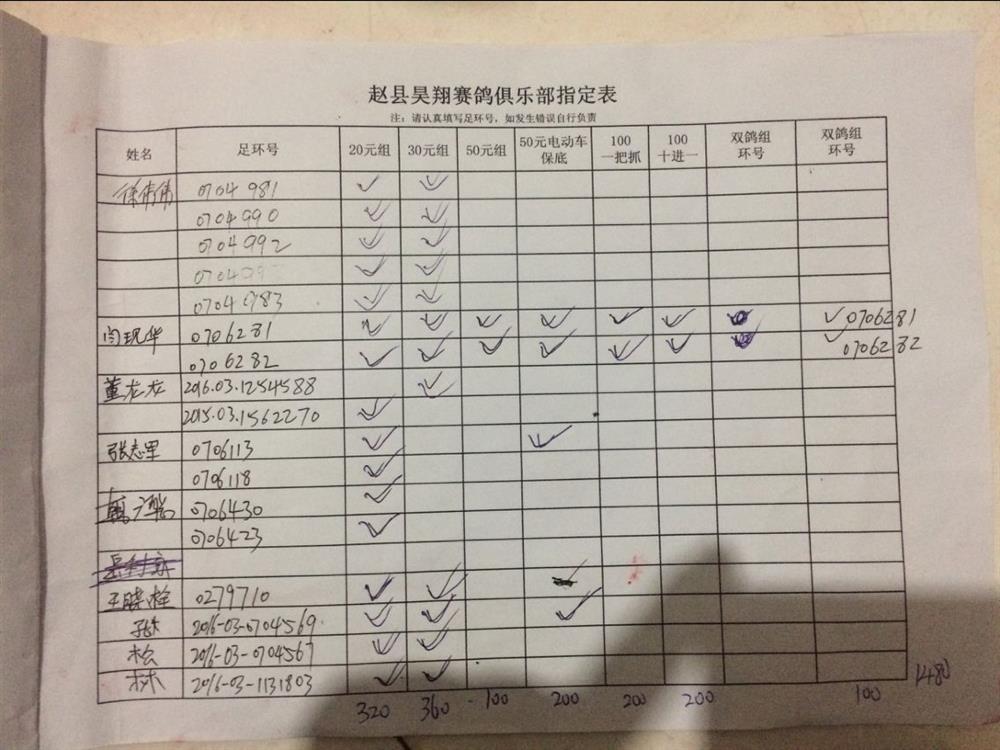 赵县昊翔赛鸽俱乐部指定表
注：请认真填写足环号，如发生错误自行负责
姓名 足环号 20元组 30元组 50元组 50元电动车保底 100一把抓 100十进一 双鸽组环号 双鸽组环号
徐伟伟 0704981 ✓ ✓
0704990 ✓ ✓
0704992 ✓ ✓
✓ ✓
0704983 ✓ ✓
闫现华 0706281 ✓ ✓ ✓ ✓ ✓ ✓ ✓0706281
0706282 ✓ ✓ ✓ ✓ ✓ ✓ ✓0706282
董龙龙 2016.03.1254588 ✓
2015.03.1562270 ✓
张志军 0706113 ✓ ✓
0706118 ✓
0706430 ✓
0706423 ✓
王晓栓 0279710 ✓ ✓
2016-03-0704569 ✓ ✓ ✓
松 2016-03-0704567 ✓ ✓
林 2016-03-1131803 ✓ ✓
320 360 100 200 200 200 100 1480